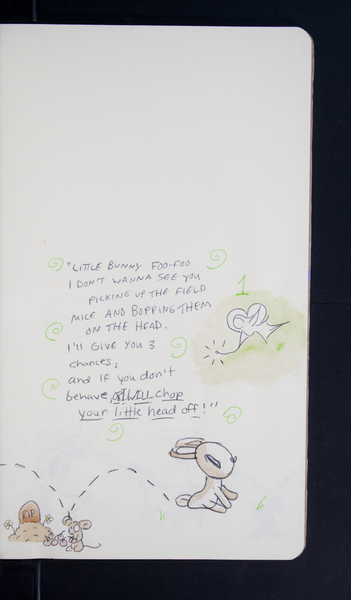 "LITTLE BUNNY FOO-FOO
I DON'T WANNA SEE YOU
PICKING UP THE FIELD
MICE AND BOPPING THEM
ON THE HEAD.
I'LL GIVE YOU 3
chances,
and if you don't
behave I WILL chop
your little head off!"
1
RIP